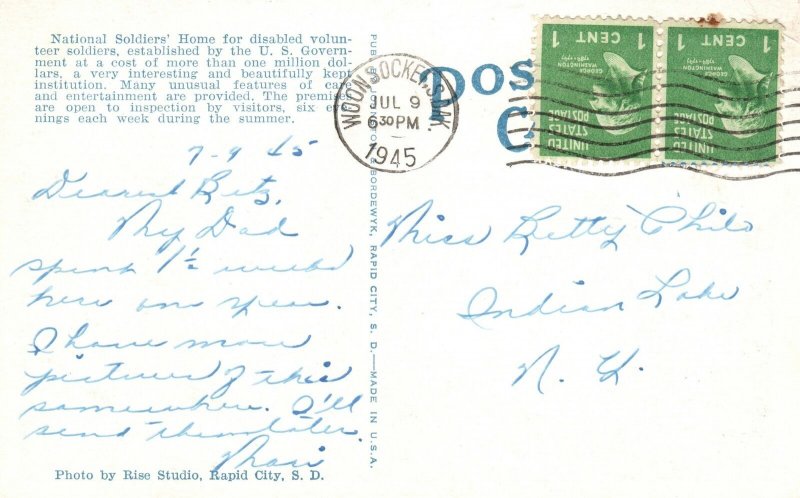 National Soldiers' Home for disabled volun-
teer soldiers, established by the U. S. Govern-
ment at a cost of more than one million dol-
lars, a very interesting and beautifully kept
institution. Many unusual features of care
and entertainment are provided. The premises
are open to inspection by visitors, six eve-
nings each week during the summer.
7-9 45
Dearest Betz,
My Dad
spent 1½ weeks
here one year.
I have more
pictures of this
somewhere. I'll
send them later.
Photo by Rise Studio, Rapid City, S. D.
BORDEWYK, RAPID CITY, S. D.—MADE IN U.S.A.
WOONSOCKET, S. DAK.
JUL 9
6 30 PM
1945
POS
C
1 CENT 1
GEORGE
WASHINGTON
UNITED
STATES
POSTAGE
1 CENT 1
GEORGE
WASHINGTON
UNITED
STATES
POSTAGE
Miss Betty Philo
Indian Lake
N. Y.